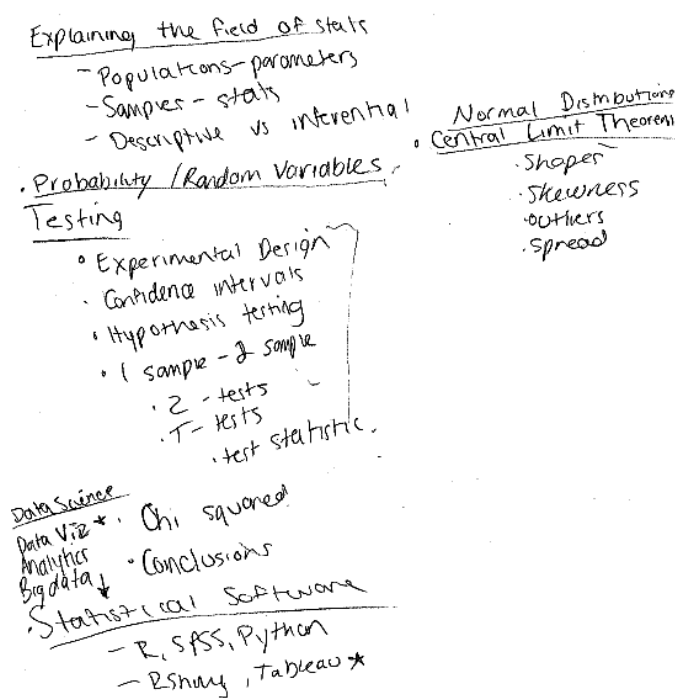 Explaining the field of stats
- Populations - parameters
- Samples - stats
- Descriptive vs inferential
Normal Distributions
• Central Limit Theorem
• Shapes
• Skewness
• outliers
• Spread
• Probability / Random Variables
Testing
• Experimental Design
• Confidence intervals
• Hypothesis testing
• 1 sample - 2 sample
• Z - tests
• T - tests
• test statistic.
Data Science
Data Viz *
Analytics
Big data ↓
• Chi squared
• Conclusions
• Statistical Software
- R, SPSS, Python
- RShiny, Tableau *